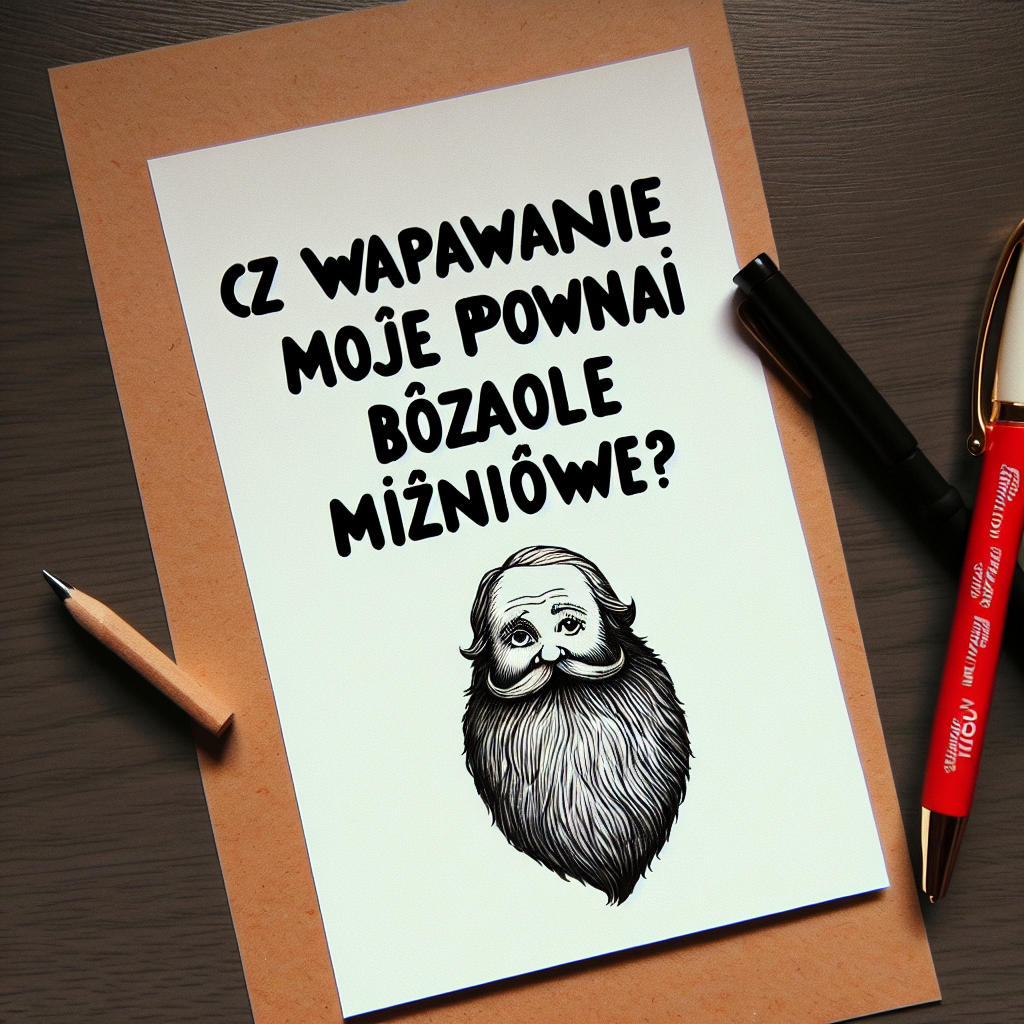 CZ WAPAWANIE
MOĴE POWNAİ
BÔZAOLE
MİẐNIÔWE?